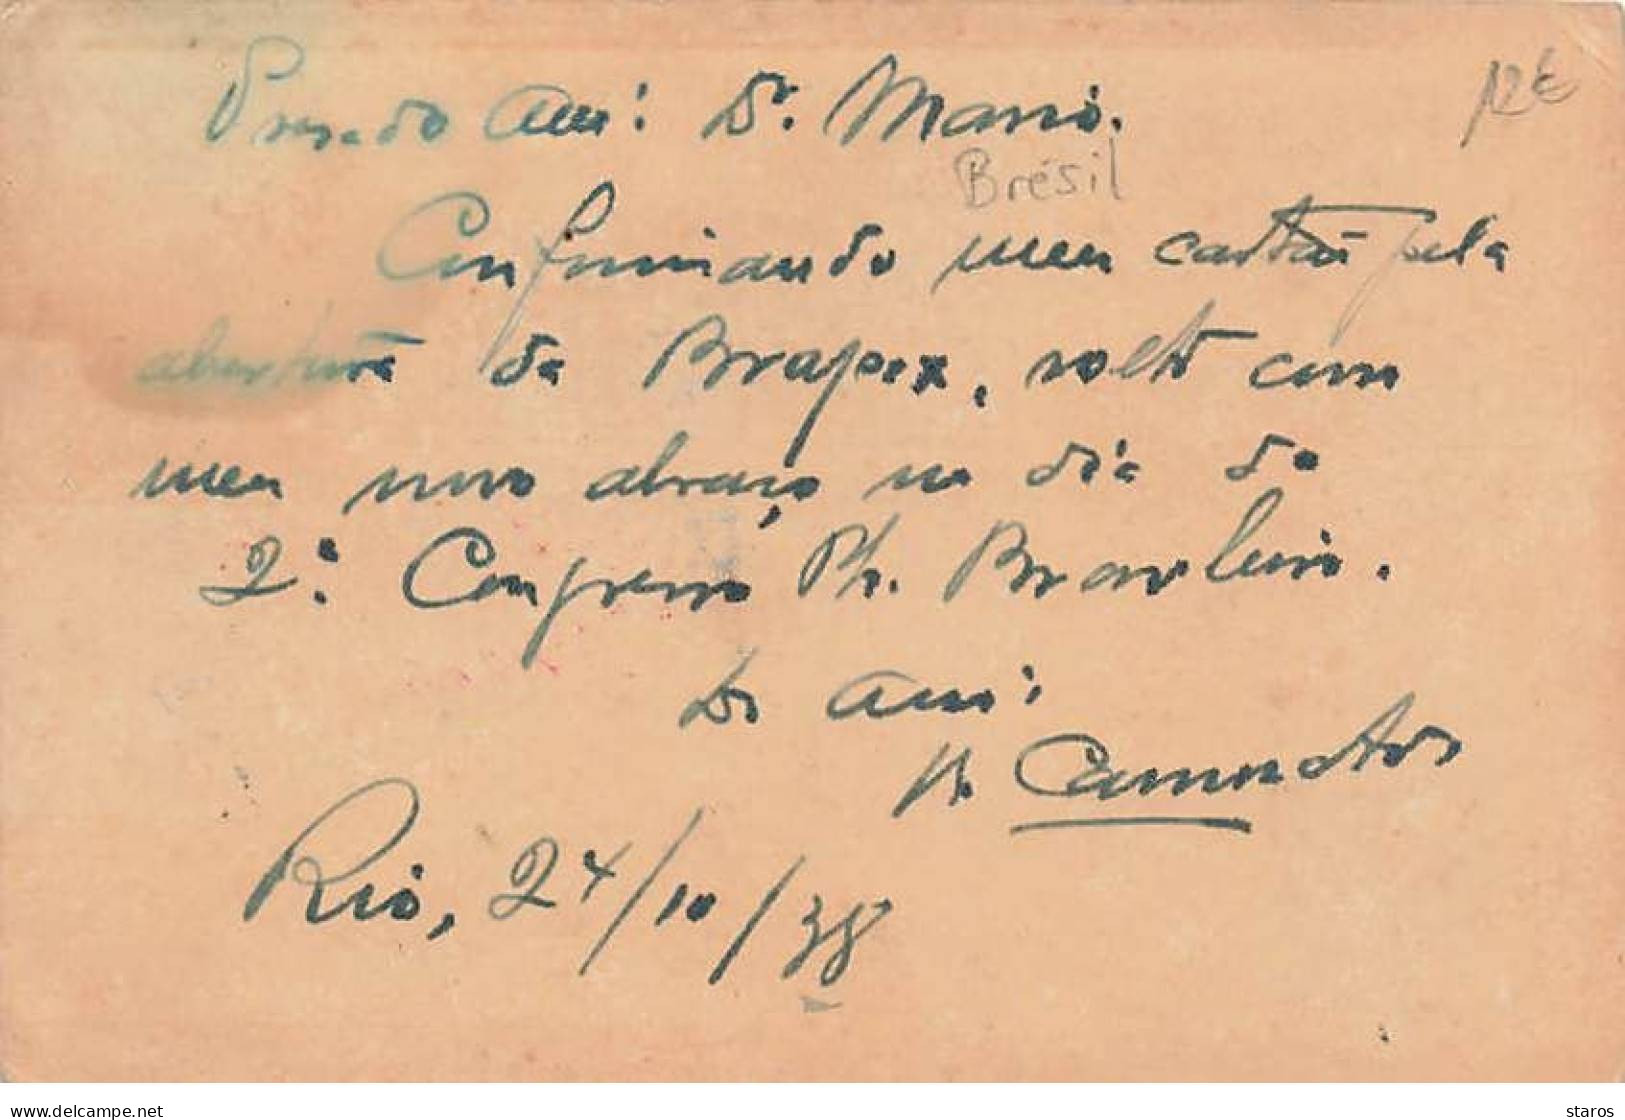 Presado Am: Dr. Mario.
12€
Brésil
Confirmando meu cartão pela
abertura da Brapex, volto com
meu novo abraço no dia do
2º: Congresso Ph. Brasileiro.
Do Amº:
Rio, 24/10/38
delcampe.net
staros